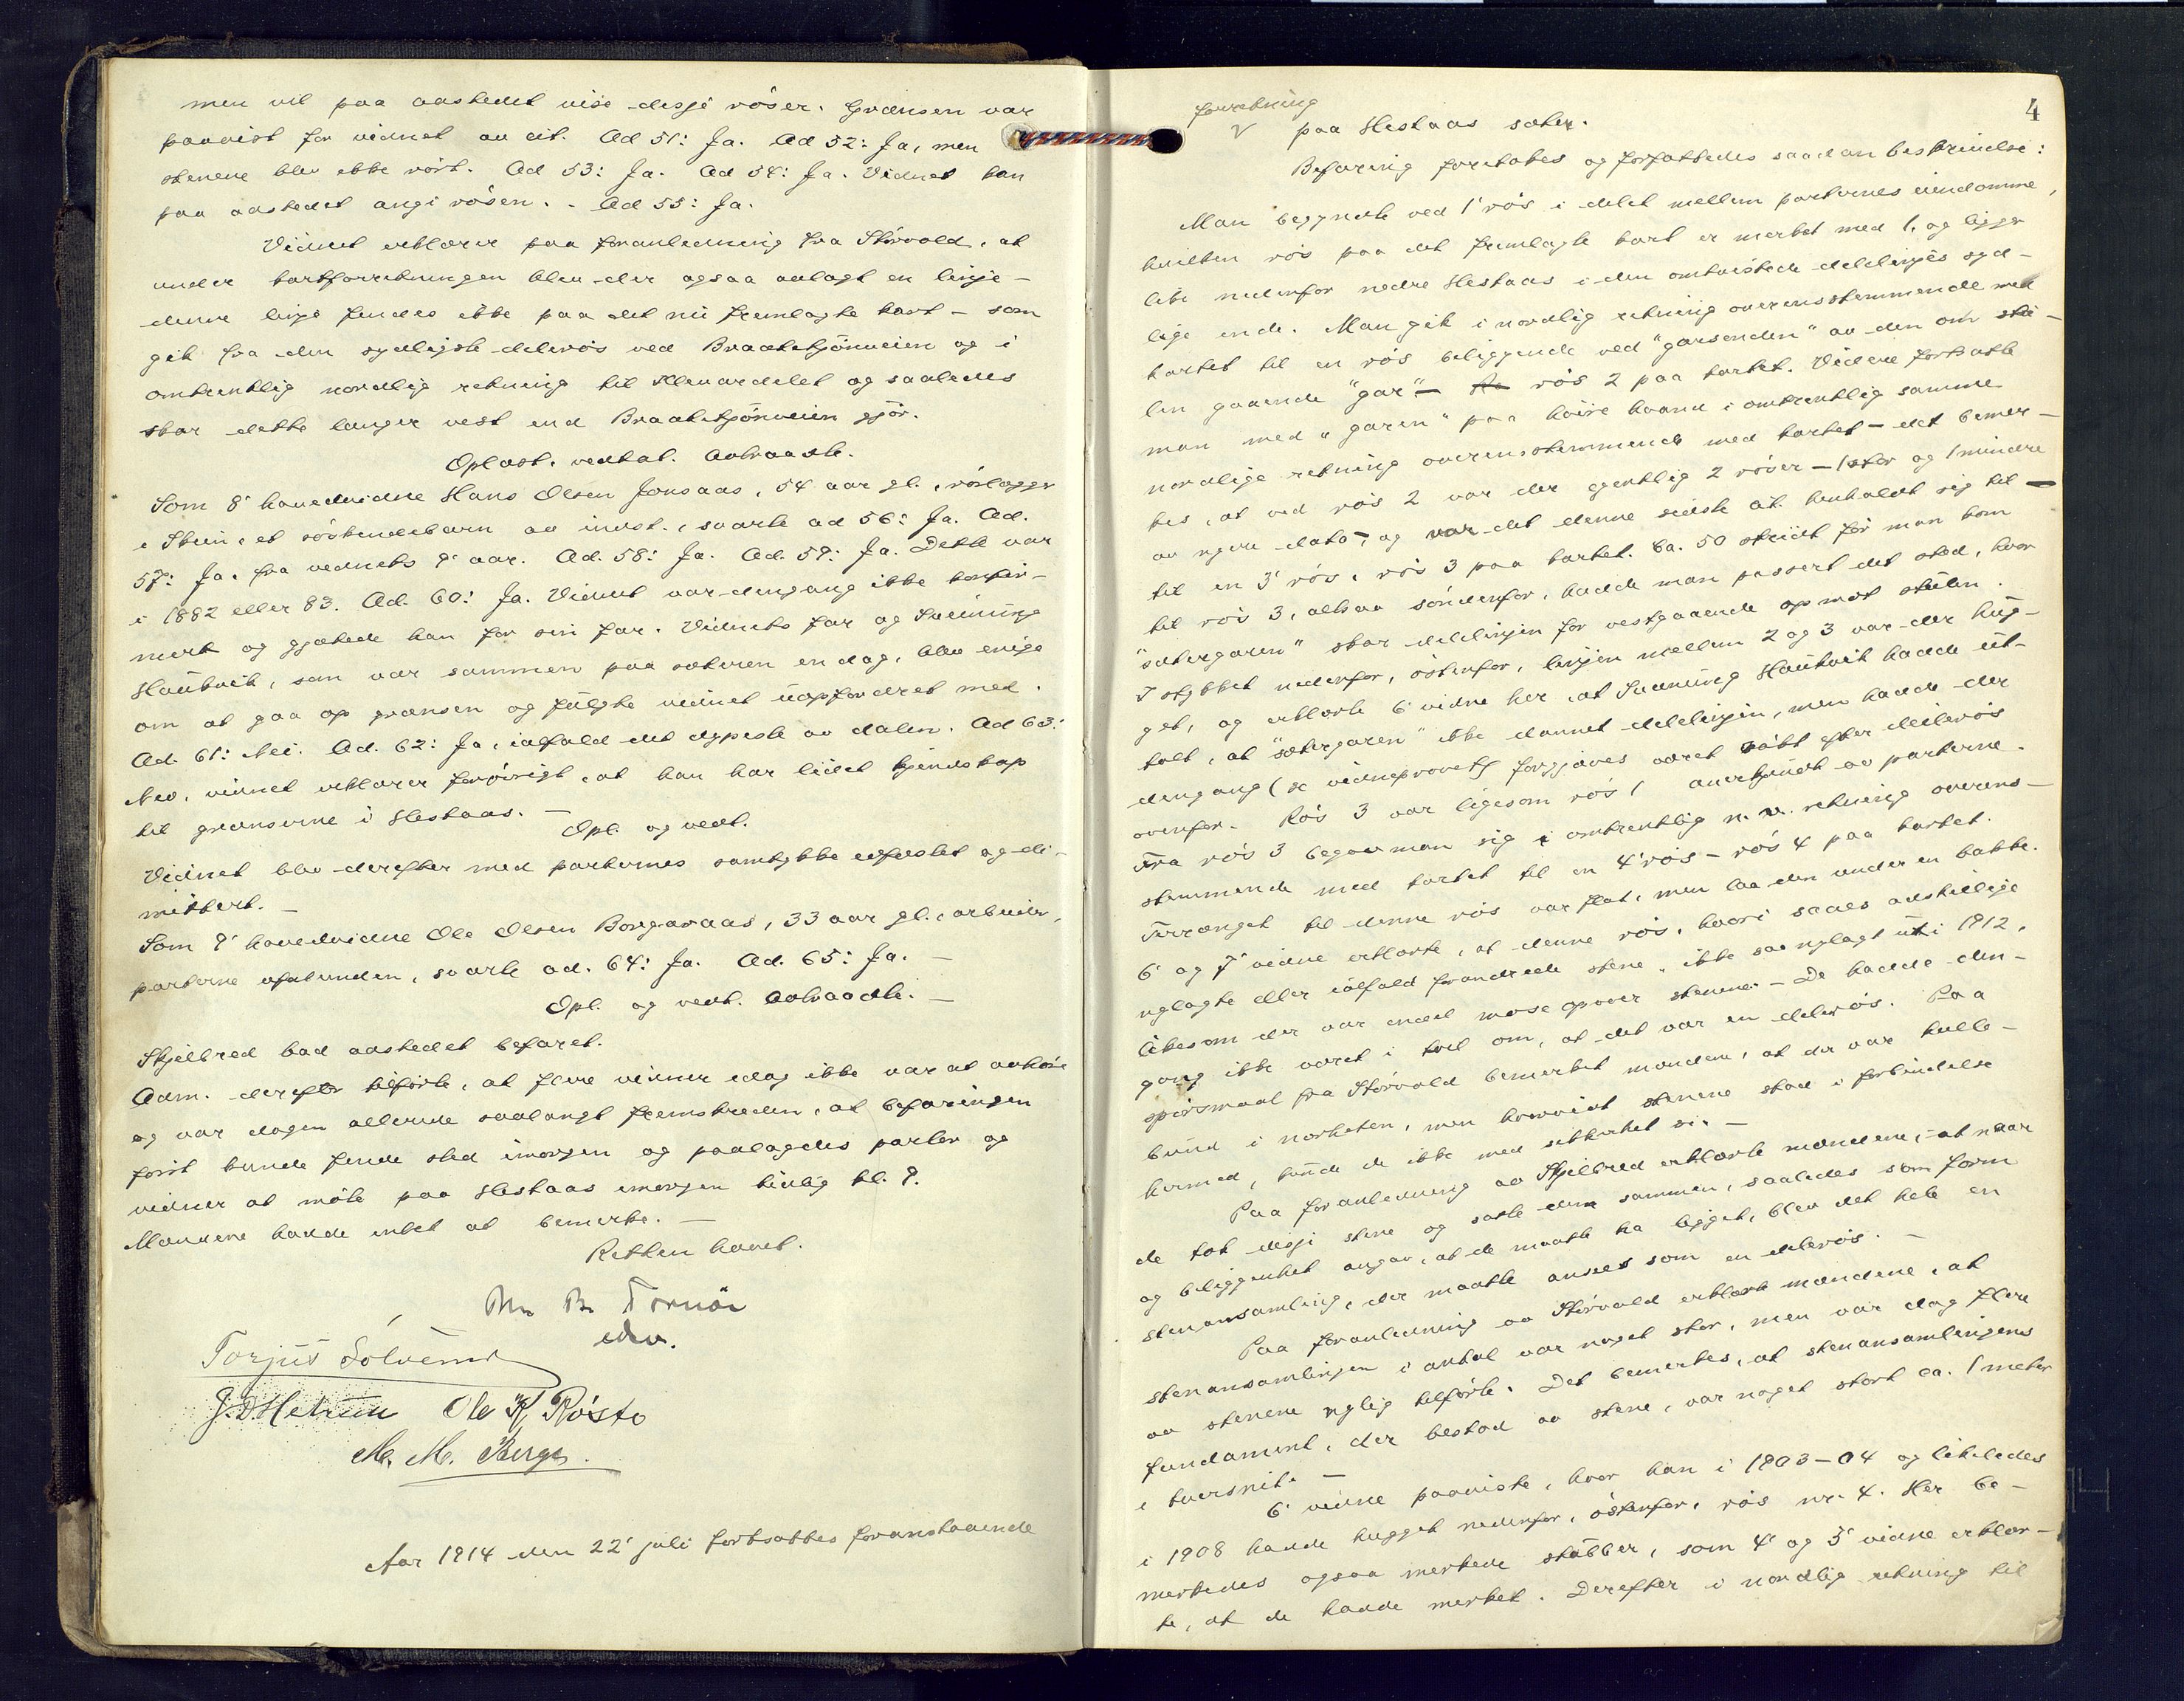 men vil paa aastedet vise disse röser. Grænsen var
paavist for vidnet av cit. Ad 51: Ja. Ad 52: Ja, men
stenene blev ikke rört. Ad 53: Ja. Ad 54: Ja. Vidnet kan
paa aastedet angi rösen. - Ad 55: Ja.
Vidnet erklærer paa foranledning fra Störvold, at
under kartforretningen blev der ogsaa anlagt en linje -
denne linje findes ikke paa det nu fremlagte kart - som
gik fra den sydligste delerös ved Braatetjönveien og i
omtrentlig nordlig retning til Klevardelet og saaledes
skar dette længer vest end Braatetjönveien gjör.
Oplæst, vedtat. Aatraadte.
Som 8' hovedvidne Hans Olsen Jonsaas, 54 aar gl., röslægger
i Skien, et söskendebarn av indst., svarte ad 56: Ja. Ad.
57: Ja, fra vednets 9' aar. Ad. 58: Ja. Ad. 59: Ja. Dette var
i 1882 eller 83. Ad. 60: Ja. Vidnet var dengang ikke konfir-
mert og gjætede han for sin far. Vidnets far og Svenning
Haukvik, som var sammen paa sæteren en dag, blev enige
om at gaa op grænsen og fulgte vidnet uopfordret med.
Ad. 61: Nei. Ad. 62: Ja, ialfald det dypeste av dalen. Ad 63:
Nei, vidnet erklærer forövrigt, at han har lidet kjendskap
til grænserne i Hestaas. -
Opl. og vedt.
Vidnet blev derefter med parternes samtykke edfæstet og di-
mittert. -
Som 9' hovedvidne Ole Olsen Borgaraas, 33 aar gl., arbeider,
parterne ubeslægtet, svarte ad. 64: Ja. Ad. 65: Ja. -
Opl. og vedt. Aatraadte. -
Skjelbred bad aastedet befaret.
Adm. derefter tilförte, at flere vidner idag ikke var at avhöre
og var dagen allerede saalangt fremskreden, at befaringen
först kunde finde sted imorgen og paalagdes parter og
vidner at möte paa Hestaas imorgen tidlig kl. 9.
Mændene hadde intet at bemerke. -
Retten hævet.
edv.
Torjus Sölvesen
Ole K. Röste
M. M. Berge.
Aar 1914 den 22' juli fortsattes foranstaaende
4
forretning
V paa Hestaas sæter.
Befaring foretokes og forfattedes saadan beskrivelse:
Man begyndte ved 1' rös i delet mellem parternes eiendomme,
hvilken rös paa det fremlagte kart er merket med 1, og ligger
like nedenfor nedre Hestaas i den omtvistede delelinjes syd-
lige ende. Man gik i nordlig retning overensstemmende med
kartet til en rös beliggende ved "garsenden" av den om sti-
len gaaende "gar" - rös 2 paa kartet. Videre fortsatte
man med "garen" paa höire haand i omtrentlig samme
nordlige retning overensstemmende med kartet - det bemer-
kes, at ved rös 2 var der egentlig 2 röser - 1 stor og 1 mindre
av nyere dato -, og var det denne sidste cit. henholdt sig til -
til en 3' rös, rös 3 paa kartet. Ca. 50 skridt för man kom
til rös 3, altsaa söndenfor, hadde man passert det sted, hvor
"sætergaren" skar delelinjen for vestgaaende op mot stulen.
I stykket nedenfor, östenfor, linjen mellem 2 og 3 var der hug-
get, og erklærte 6' vidne her, at Svenning Haukvik hadde ut-
talt, at "sætergaren" ikke dannet delelinjen, men hadde der
dengang (se vidneprovet) forgjæves været sökt efter delerös
ovenfor. Rös 3 var ligesom rös 1 anerkjendt av parterne.
Fra rös 3 begav man sig i omtrentlig n. v. retning overens-
stemmende med kartet til en 4' rös - rös 4 paa kartet.
Terrænget til denne rös var flat, men laa den under en bakke.
6' og 7' vidne erklærte, at denne rös, hvori saaes adskillige
nylagte eller ialfald forandrede stene, ikke saa nylagt ut i 1912,
likesom der var endel mose opover stenene. - De hadde den-
gang ikke været i tvil om, at det var en delerös. Paa
spörsmaal fra Störvold bemerket mændene, at der var kulle-
bund i nærheten, men hvorvidt stenene stod i forbindelse
hermed, kunde de ikke med sikkerhet si. -
Paa foranledning av Skjelbred erklærte mændene, at naar
de tok disse stene og satte dem sammen, saaledes som form
og beliggenhet angav, at de maatte ha ligget, blev det hele en
stenansamling, der maatte ansees som en delerös. -
Paa foranledning av Störvold erklærte mændene, at
stenansamlingen i antal var noget stor, men var dog flere
av stenene nylig tilförte. Det bemerkes, at stenansamlingens
fundament, der bestod av stene, var noget stort ca. 1 meter
i tversnit. -
6' vidne paaviste, hvor han i 1903-04 og likeledes
i 1908 hadde hugget nedenfor, östenfor, rös nr. 4. Her be-
merkedes ogsaa merkede stubber, som 4' og 5' vidne erklær-
te, at de hadde merket. Derefter i nordlig retning til